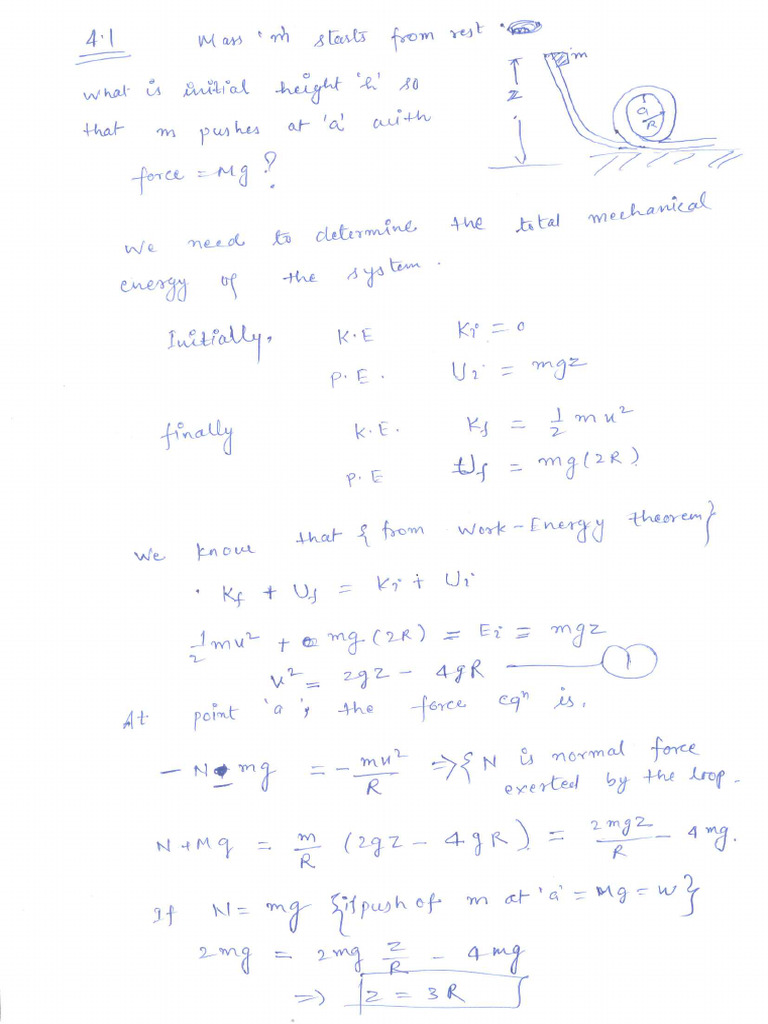 4.1 Mass 'm' starts from rest
what is initial height 'h' so
that m pushes at 'a' with
force = Mg ?
m
Z
a
R
We need to determine the total mechanical
energy of the system.
Initially, K.E Ki = 0
P.E. Ui = mgz
finally K.E. Kf = 1/2 mu²
P.E Uf = mg(2R)
We know that { from Work-Energy theorem}
Kf + Uf = Ki + Ui
1/2 mu² + mg(2R) = Ei = mgz
u² = 2gz - 4gR 1
At point 'a', the force eqn is,
- N - mg = - mu²/R ⇒ { N is normal force
exerted by the loop.
N + Mg = m/R (2gz - 4gR) = 2mgz/R - 4mg.
If N = mg {if push of m at 'a' = Mg = W}
2mg = 2mg z/R - 4mg
⇒ z = 3R